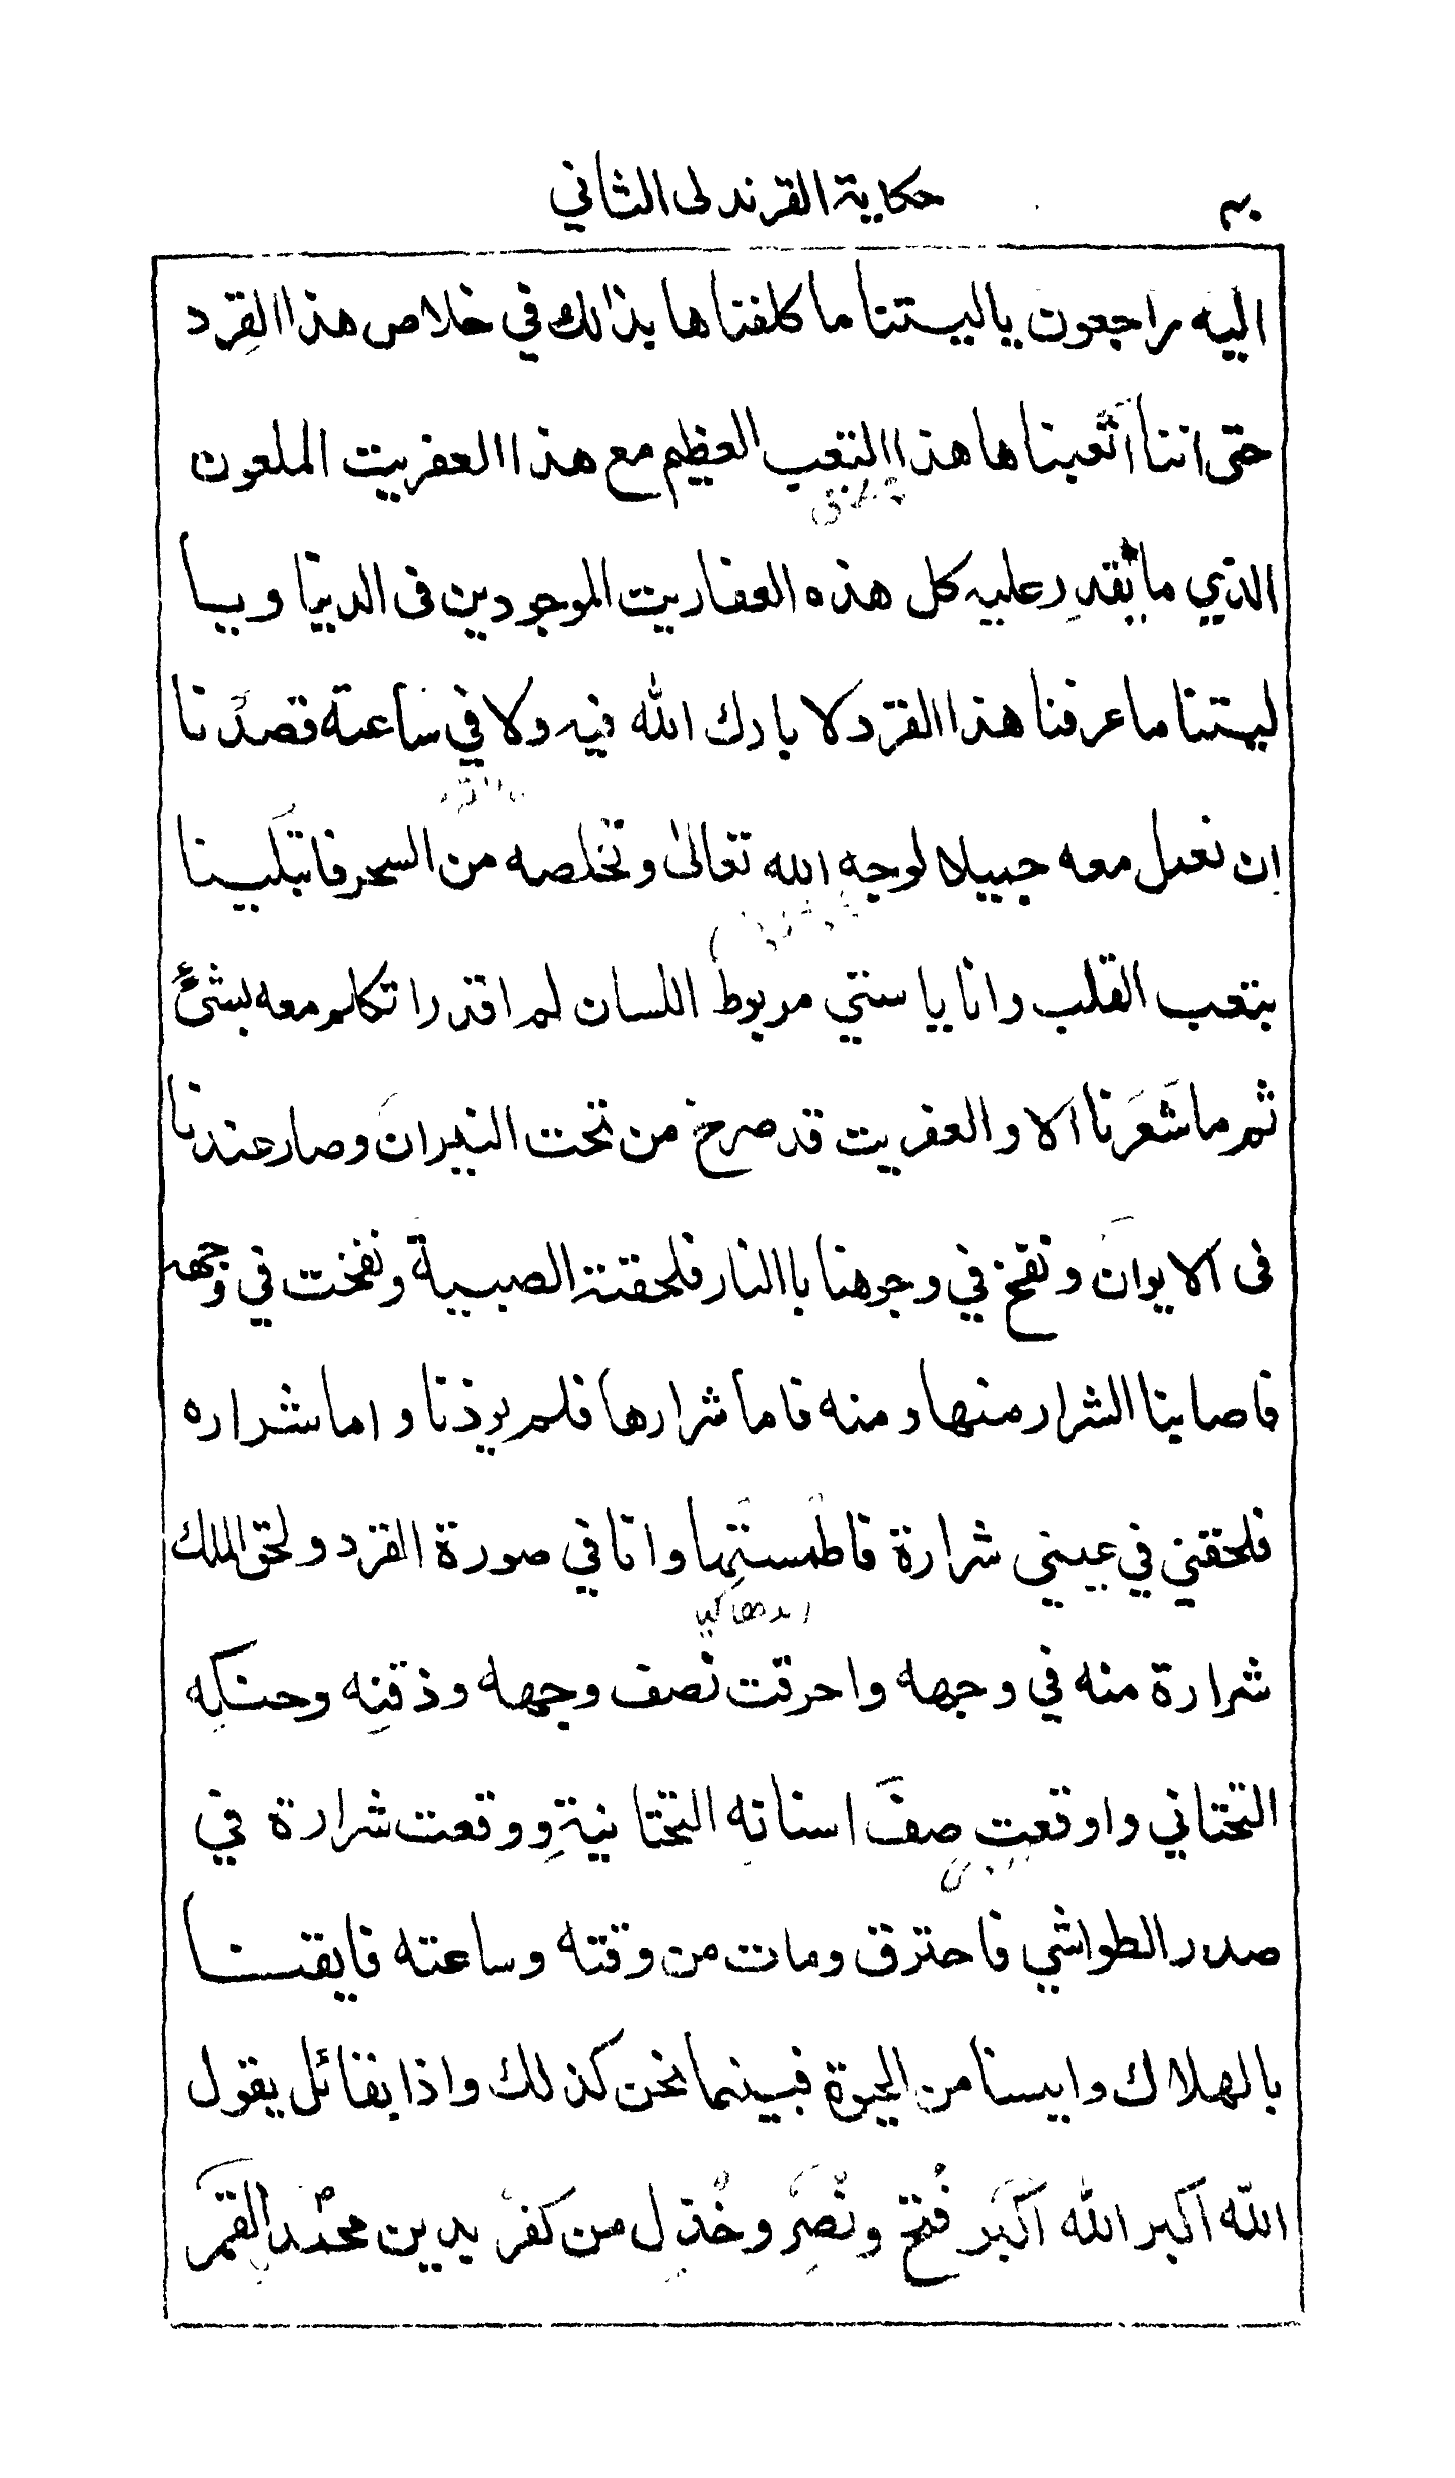 حكاية القرندلى الثاني
اليه راجعون ياليتنا ما كلفناها بذالك في خلاص هذا القِرد
حتى اننا اتعبناها هذا التعب العظيم مع هذا العفريت الملعون
الذي ما يقدر عليه كل هذه العفاريت الموجودين فى الدنيا ويا
ليتنا ما عرفنا هذا القرد لا بارك الله فيه ولا في ساعة قصدنا
ان نعمل معه جميلا لوجه الله تعالى ونخلصه من السحر فابتلينا
بتعب القلب وانا يا ستي مربوط اللسان لم اقدر اتكلم معه بشئ
ثم ما شَعَرنا الا والعفريت قد صرخ من تحت النيران وصار عندنا
فى الايوان ونفخ في وجوهنا باالنار فلحقته الصبية ونفخت في وجهه
فاصابنا الشرار منها ومنه فاما شرارها فلم يوذنا واما شراره
فلحقني في عيني شرارة فاطمستها وانا في صورة القرد ولحق الملك
شرارة منه في وجهه واحرقت نصف وجهه وذقنه وحنكه
التحتاني واوقعت صفَ اسنانه التحتانية ووقعت شرارة في
صدر الطواشي فاحترق ومات من وقته وساعته فايقنا
بالهلاك وايسنا من الحيوة فبينما نحن كذلك واذا بقائل يقول
الله اكبر الله اكبر فُتح ونُصِر وخُذِل من كفر بدين محمد القمر